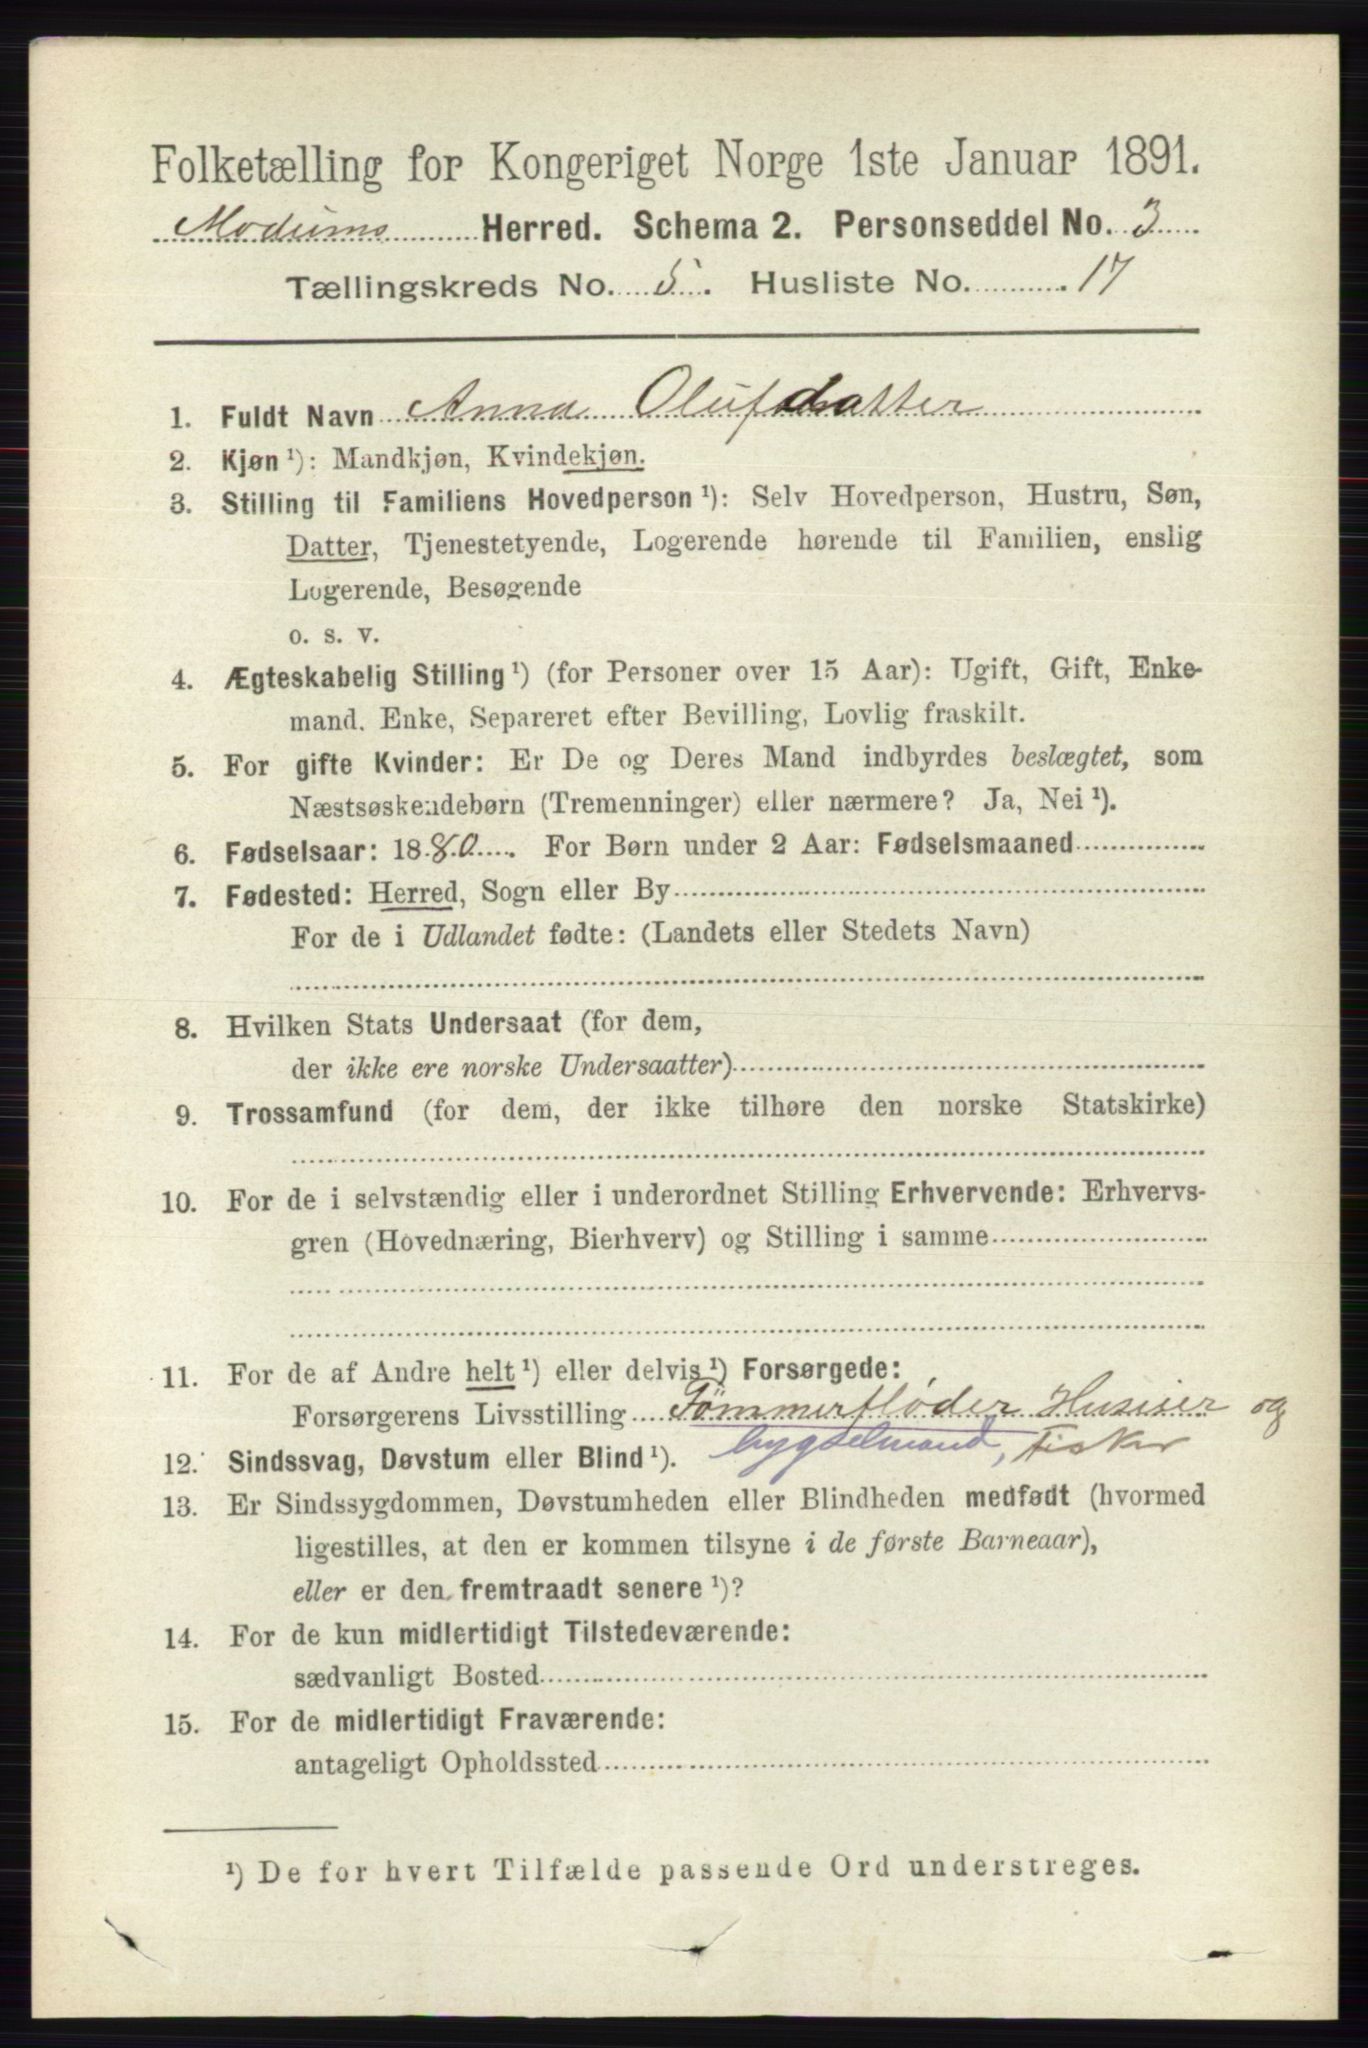 Folketælling for Kongeriget Norge 1ste Januar 1891.
Modums Herred. Schema 2. Personseddel No. 3
Tællingskreds No. 5. Husliste No. 17
1. Fuldt Navn Anna Olufsdatter
2. Kjøn ¹): Mandkjøn, Kvindekjøn.
3. Stilling til Familiens Hovedperson ¹): Selv Hovedperson, Hustru, Søn,
Datter, Tjenestetyende, Logerende hørende til Familien, enslig
Logerende, Besøgende
o. s. v.
4. Ægteskabelig Stilling ¹) (for Personer over 15 Aar): Ugift, Gift, Enke-
mand. Enke, Separeret efter Bevilling, Lovlig fraskilt.
5. For gifte Kvinder: Er De og Deres Mand indbyrdes beslægtet, som
Næstsøskendebørn (Tremenninger) eller nærmere? Ja, Nei ¹).
6. Fødselsaar: 1880. For Børn under 2 Aar: Fødselsmaaned
7. Fødested: Herred, Sogn eller By
For de i Udlandet fødte: (Landets eller Stedets Navn)
8. Hvilken Stats Undersaat (for dem,
der ikke ere norske Undersaatter)
9. Trossamfund (for dem, der ikke tilhøre den norske Statskirke)
10. For de i selvstændig eller i underordnet Stilling Erhvervende: Erhvervs-
gren (Hovednæring, Bierhverv) og Stilling i samme
11. For de af Andre helt ¹) eller delvis ¹) Forsørgede:
Forsørgerens Livsstilling Tömmerfløder Huseier og
bygselmand, Fisker
12. Sindssvag, Døvstum eller Blind ¹).
13. Er Sindssygdommen, Døvstumheden eller Blindheden medfødt (hvormed
ligestilles, at den er kommen tilsyne i de første Barneaar),
eller er den fremtraadt senere ¹)?
14. For de kun midlertidigt Tilstedeværende:
sædvanligt Bosted
15. For de midlertidigt Fraværende:
antageligt Opholdssted
¹) De for hvert Tilfælde passende Ord understreges.